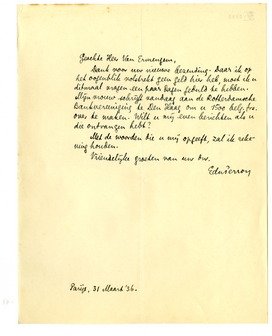 Geachte Heer Van Ermengem,
Dank voor uw nieuwe bezending. Daar ik op
het oogenblik volstrekt geen geld hier heb, moet ik u
ditmaal vragen een paar dagen geduld te hebben.
Mijn vrouw schrijft vandaag aan de Rotterdamsche
bankvereeniging te Den Haag om u 1500 belg. frs.
over te maken. Wilt u mij even berichten als u
die ontvangen hebt?
Met de woorden die u mij opgeeft, zal ik reke-
ning houden.
Vriendelijke groeten van uw dw.
EduPerron
Parijs, 31 Maart '36.